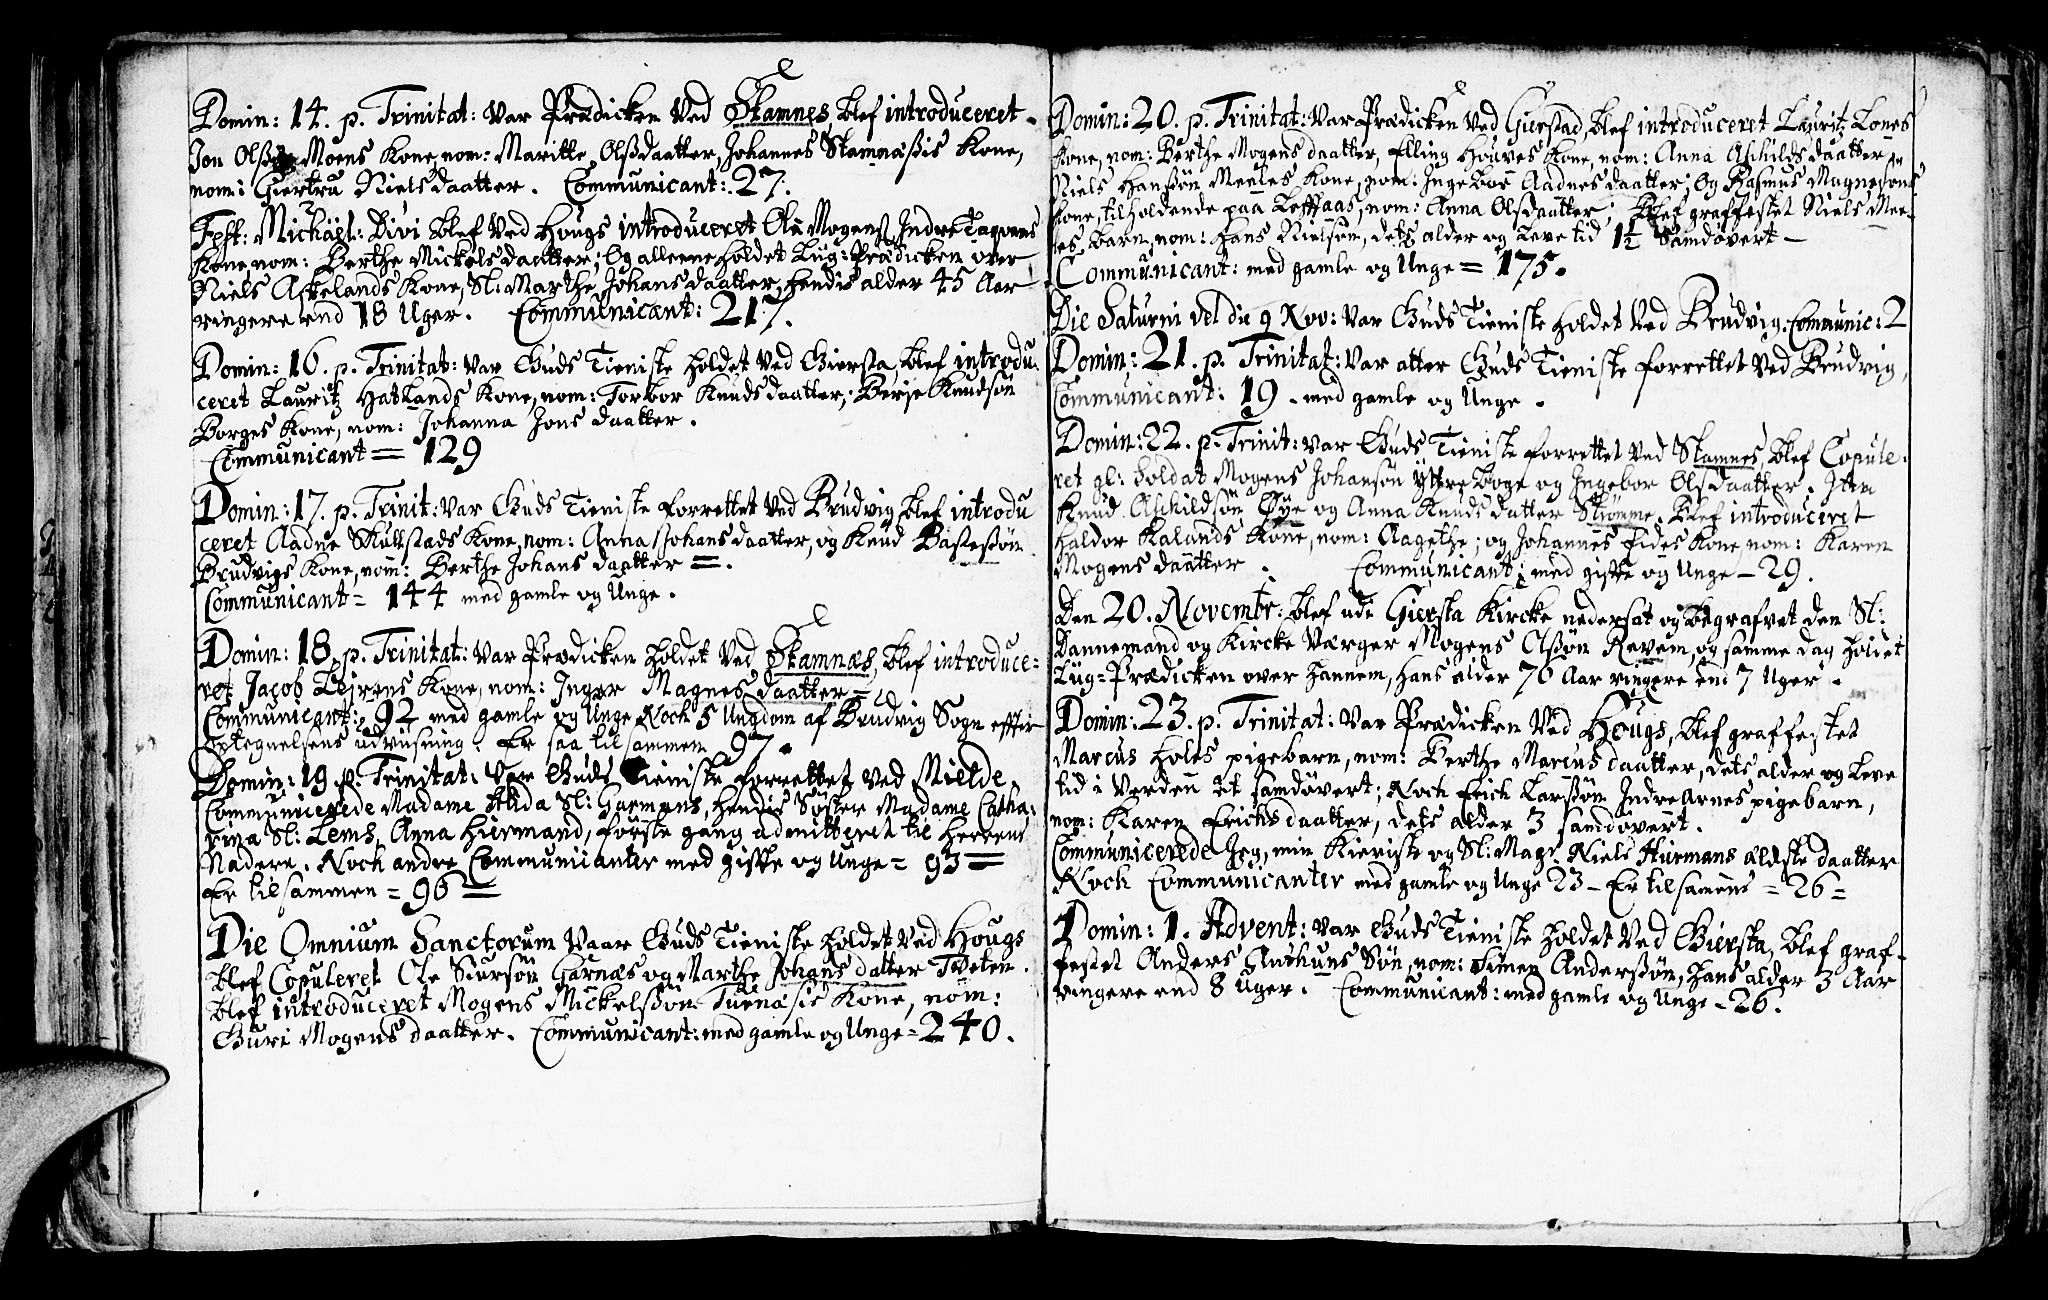 Domin: 14. p. Trinitat: var Prædicken Ved Stamnes, blef introduceret
Jon Olss Moens Kone, nom: Maritte Olssdaatter, Johannes Stamnæssis Kone,
nom: Giertru Nielsdaatter. Communicant: 27.
Fest: Michäel: Divi blef Ved Hougs introduceret Ole Mogens Indre Taqvams
Kone, nom: Berthe Mickelsdaatter; Og alleene holdet Liig-Prædicken over
Niels Askelands Kone, Sl: Marthe Johansdaatter, hendis alder 45 Aar
ringere end 18 Uger. Communicant: 217.
Domin: 16. p. Trinitat: var Guds Tieniste holdet Ved Giersta, blef introdu-
ceret Lauritz Hatlands Kone, nom: Torbor Knudsdaatter; Børje Knudsøn
Borges Kone, nom: Johanna Jons daatter.
Communicant = 129
Domin: 17. p. Trinit: var Guds Tieniste forrettet Ved Brudvig, blef introdu
ceret Aadne Skulstads Kone, nom: Anna Johansdaatter, og Knud Bastessøn
Brudvigs Kone, nom: Berthe Johans daatter =.
Communicant = 144 med gamle og Unge.
Domin: 18. p. Trinitat: var Prædicken holdet Ved Stamnæs, blef introduce-
ret Jacob Lejrens Kone, nom: Inger Magnes daatter =
Communicant: 92 med gamle og Unge. Noch 5 Ungdom af Brudvig Sogn effter
optegnelsens udviisning. Er saa tilsammen 97.
Domin: 19. p. Trinitat: Var Guds Tieniste forrettet Ved Mielde,
Communicerede Madame Alida Sl: Garmans, hendis Søster Madame Catha-
rina Sl: Lems, Anna Hiermand, første gang admitteret til Herrens
Nadere. Noch andre Communicanter med giffte og Unge = 93 =
Er tilsammen = 96 =
Die Omnium Sanctorum Vaar Guds Tieniste holdet Ved Hougs
blef Copuleret Ole Siursøn Garnæs og Marthe Johans datter Tveten.
blef introduceret Mogens Mickelssøn Tuenæsis Kone, nom:
Guri Mogens daatter. Communicant: med gamle og Unge = 240.
Domin: 20. p. Trinitat: Var Prædicken Ved Gierstad, blef introduceret Lauritz Lones
Kone, nom: Berthe Mogens daatter, Elling Houves Kone, nom: Anna Askilds daatter,
Niels Hanssøn Meeles Kone, nom: Ingebor Aadnes daatter; Og Rasmus Magnesøns
Kone, tilholdende paa Leffaas, nom: Anna Olsdaatter; Blef graffestet Niels Mee-
les barn, nom: Hans Nielsøn, dets alder og Leve tid 1½ Samdøvert —
Communicant: med gamle og Unge = 175.
Die Saturni vel die 9 Nov: Var Guds Tieniste holdet Ved Brudvig. Communic: 2
Domin: 21. p. Trinitat: Var atter Guds Tieniste forrettet Ved Brudvig,
Communicant: 19. med gamle og Unge.
Domin: 22. p. Trinit: var Guds Tieniste forrettet Ved Stamnes, blef Copule-
ret gl: Soldat Mogens Johansøn yttre Boge og Ingebor Olsdaatter. Item
Knud Askildsøn Øye og Anna Knudsdatter Strømme. Blef introduceret
Haldor Kalands Kone, nom: Aagethe; og Johannes Eides Kone, nom: Karen
Mogens daatter. Communicant: med giffte og Unge — 29.
Den 20. Novembr: blef udi Giersta Kircke nedersat og begrafvet den Sl:
Dannemand og Kircke Værger Mogens Olssøn Revem, og samme dag holdet
Liig-Prædicken over hannem, hans alder 70 Aar ringere end 7 Uger.
Domin: 23. p. Trinitat: Var Prædicken Ved Hougs, blef graffestet
Marcus Holes pigebarn, nom: Berthe Marcus daatter, dets alder og Leve
tid i Verden et samdøvert; Noch Erich Larssøn Indre Arnes pigebarn,
nom: Karen Erichsdaatter, dets alder 3 samdøvert.
Communicerede Jeg, min Kieriste og Sl: Magr Niels Hiermans ældste daatter
Noch Communicanter med gamle og Unge 23 — Er tilsamens = 26 =
Domin: 1. Advent: Var Guds Tieniste holdet Ved Giersta, blef graf-
festet Anders Authuns Søn, nom: Simen Anderssøn, hans alder 3 Aar
ringere end 8 uger. Communicant: med gamle og Unge = 26.